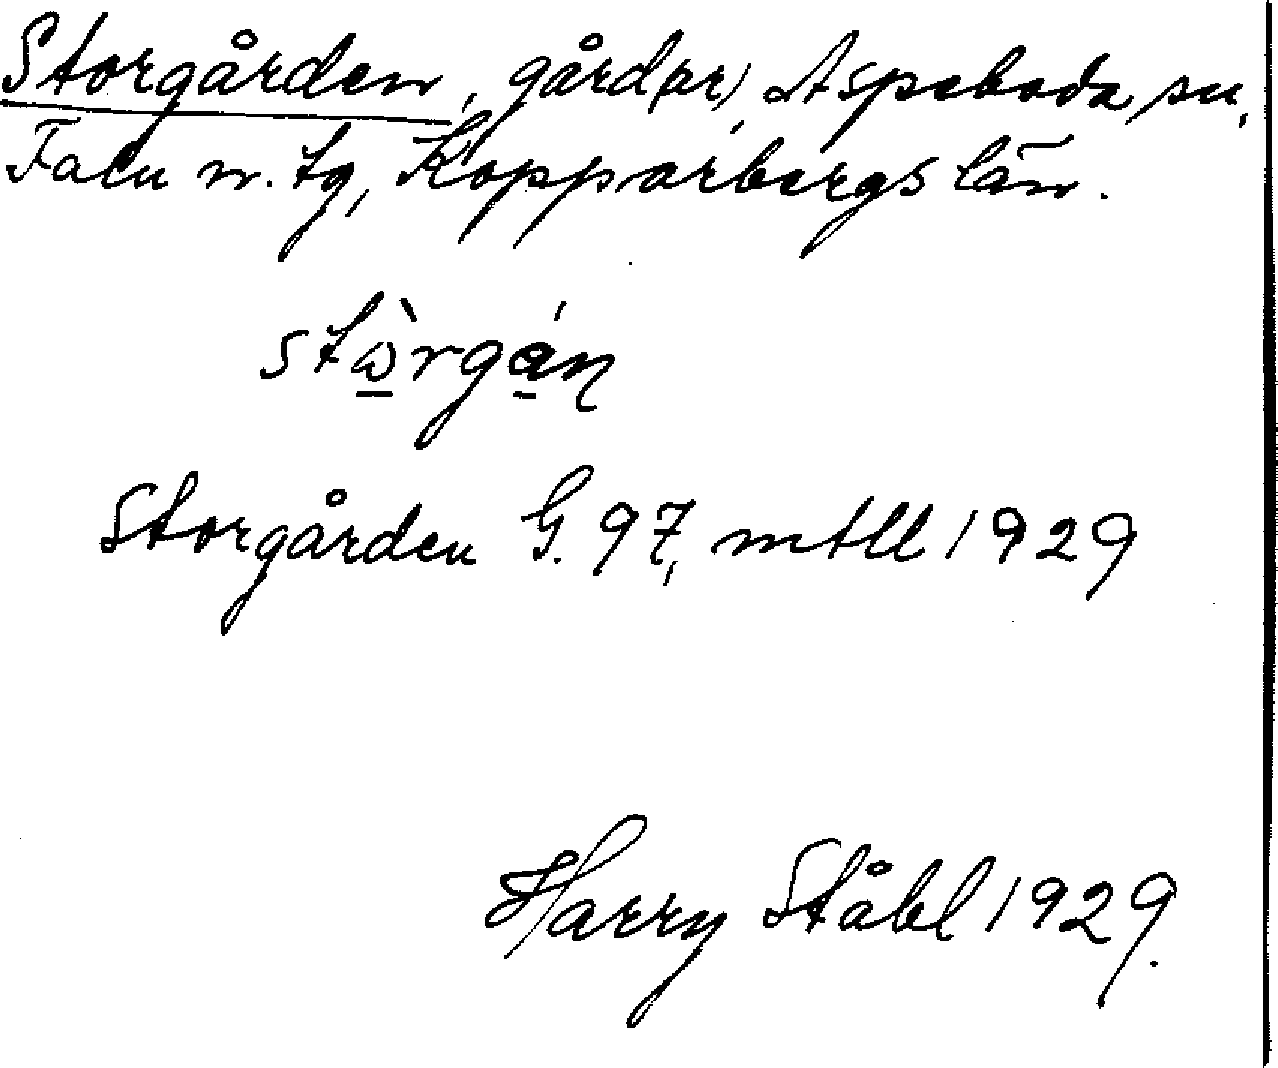 Storgården, gård(ar), Aspeboda sn,
Falu n. tg, Kopparbergs län.
stὼ̲rgá̲ɳ
Storgården G. 97, mtll 1929
Harry Ståhl 1929.